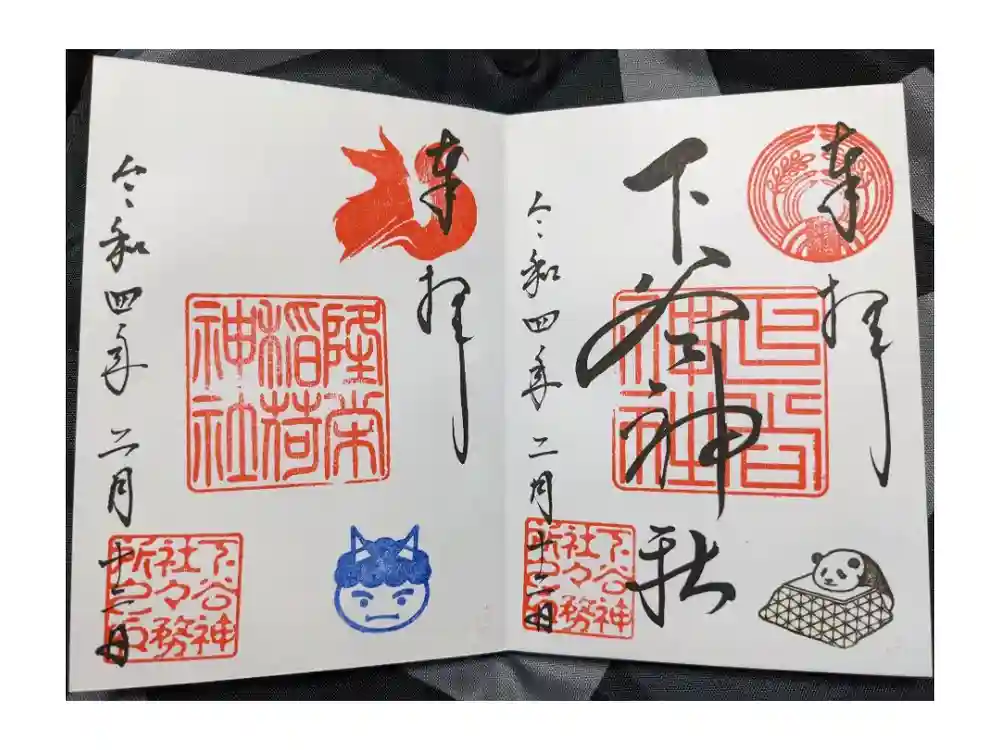 奉拝
下谷神社
下谷
神社
令和四年二月十二日
下谷神
社々務
所之印
奉拝
隆栄
稲荷
神社
令和四年二月十二日
下谷神
社々務
所之印